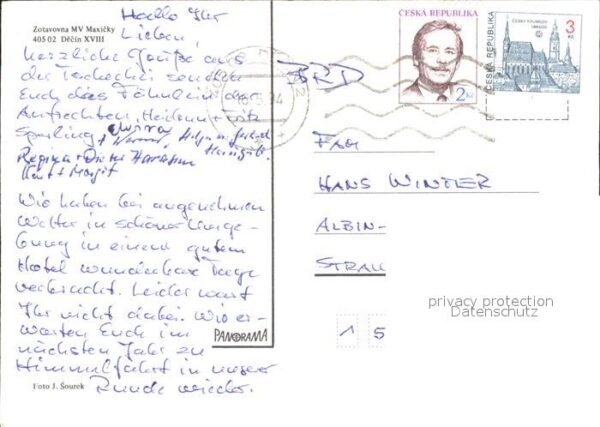 Zotavovna MV Maxičky
405 02 Děčín XVIII
Hallo Ihr
Lieben,
herzliche Grüße aus
der Tschechei senden
Euch das Fähnlein der
Aufrechten, Heilenn + Fritz
Sperling, Elvira
Regina + Dieter
Kurt + Margit
Wir haben bei angenehmen
Wetter in schöner Umge-
bung in einem guten
Hotel wunderbare Tage
verbracht. Leider wart
Ihr nicht dabei. Wir er-
warten Euch im
nächsten Jahr zu
Himmelfahrt in unserer
Runde wieder.
Foto J. Šourek
PANORAMA
BRD
ČESKÁ REPUBLIKA
2 Kč
ČESKÁ REPUBLIKA
ČESKÝ KRUMLOV
UNESCO
3
Kč
FAM
HANS WINTER
ALBIN-
STRAU
privacy protection
Datenschutz
1 5